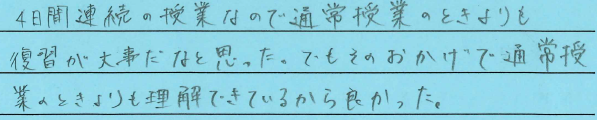 4日間連続の授業なので通常授業のときよりも
復習が大事だなと思った。でもそのおかげで通常授
業のときよりも理解できているから良かった。